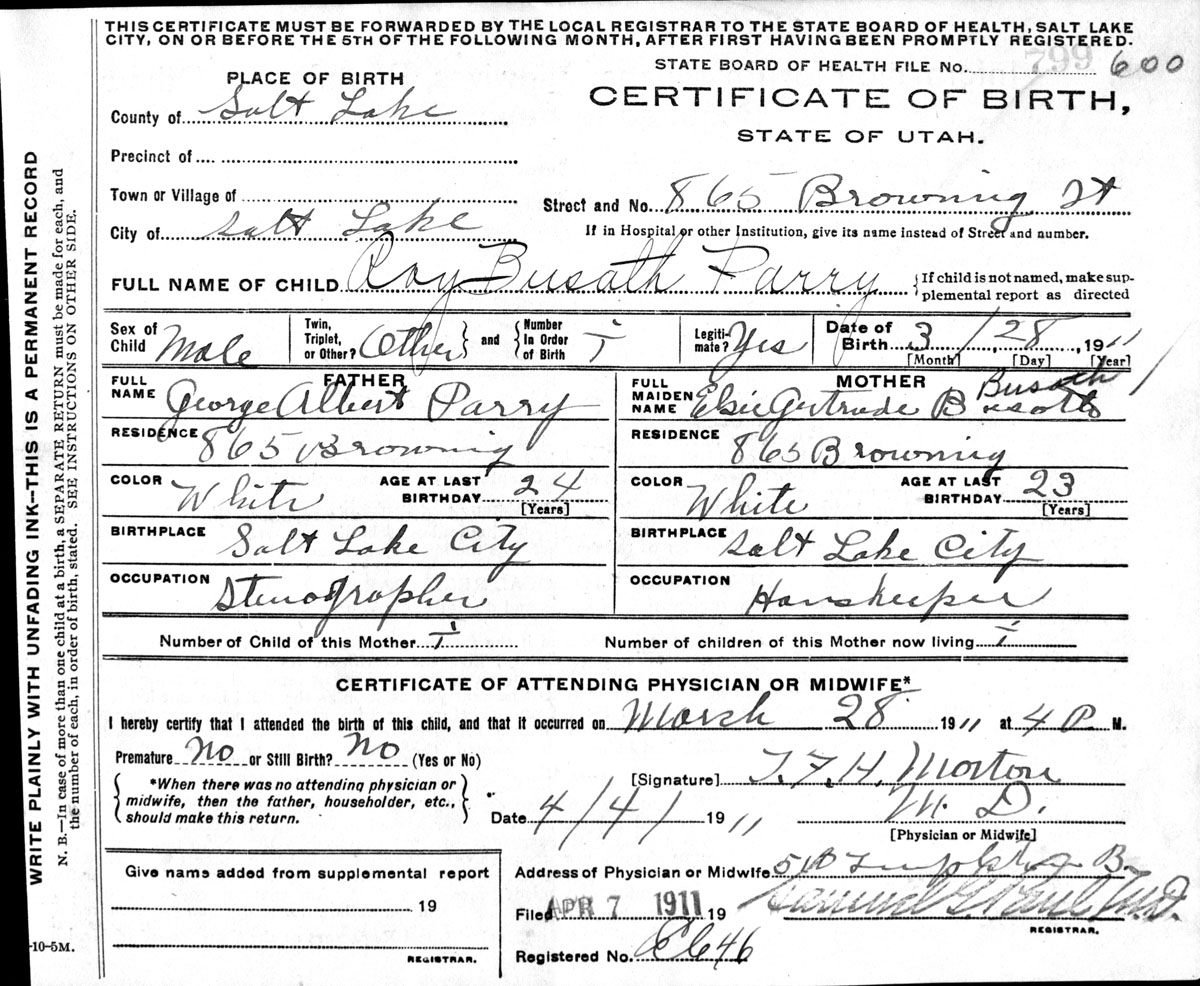 THIS CERTIFICATE MUST BE FORWARDED BY THE LOCAL REGISTRAR TO THE STATE BOARD OF HEALTH, SALT LAKE
CITY, ON OR BEFORE THE 5TH OF THE FOLLOWING MONTH, AFTER FIRST HAVING BEEN PROMPTLY REGISTERED.
STATE BOARD OF HEALTH FILE No. 799 600
PLACE OF BIRTH
CERTIFICATE OF BIRTH,
STATE OF UTAH.
County of Salt Lake
Precinct of
Town or Village of
Street and No. 865 Browning St
City of Salt Lake
If in Hospital or other Institution, give its name instead of Street and number.
FULL NAME OF CHILD Roy Busath Parry {If child is not named, make sup-
plemental report as directed
Sex of Child Male
Twin, Triplet, or Other? Other } and { Number In Order of Birth 1
Legiti-mate? Yes
Date of Birth 3/28, 1911
[Month] [Day] [Year]
FATHER
FULL NAME George Albert Parry
RESIDENCE 865 Browning
COLOR White AGE AT LAST BIRTHDAY 24
[Years]
BIRTHPLACE Salt Lake City
OCCUPATION Stenographer
MOTHER
FULL MAIDEN NAME Elsie Gertrude Busath Busath
RESIDENCE 865 Browning
COLOR White AGE AT LAST BIRTHDAY 23
[Years]
BIRTHPLACE Salt Lake City
OCCUPATION Houskeeper
Number of Child of this Mother 1 Number of children of this Mother now living 1
CERTIFICATE OF ATTENDING PHYSICIAN OR MIDWIFE*
I hereby certify that I attended the birth of this child, and that it occurred on March 28 1911 at 4 P. M.
Premature No or Still Birth? No (Yes or No)
[Signature] T. F. H. Morton
*When there was no attending physician or
midwife, then the father, householder, etc.,
should make this return.
Date 4/4/ 1911
M. D.
[Physician or Midwife]
Give name added from supplemental report
19
REGISTRAR.
Address of Physician or Midwife
Filed APR 7 1911 19
Samuel G. Paul M.D.
REGISTRAR.
Registered No. 646
WRITE PLAINLY WITH UNFADING INK--THIS IS A PERMANENT RECORD
N. B.—In case of more than one child at a birth, a SEPARATE RETURN must be made for each, and
the number of each, in order of birth, stated. SEE INSTRUCTION ON OTHER SIDE.
-10-5M.